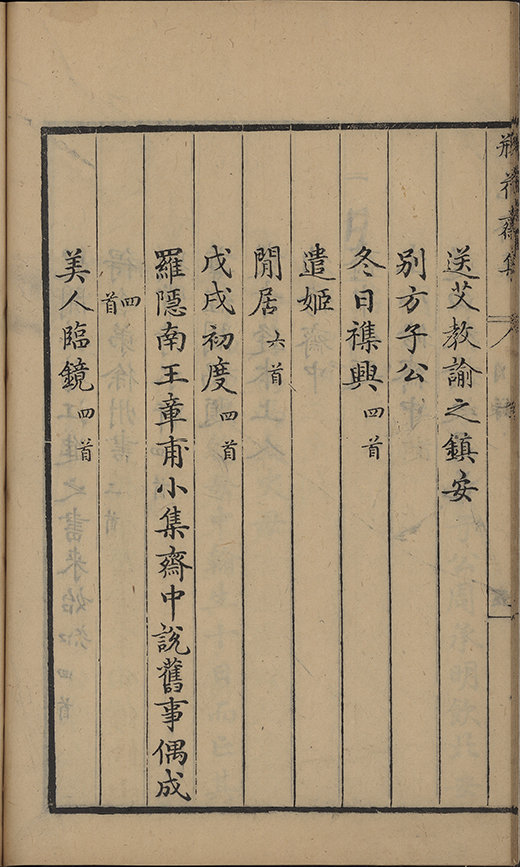 瓶花齋集
送艾教諭之鎮安
別方子公
冬日襍興四首
遣姬
閒居六首
戊戌初度四首
羅隱南王章甫小集齋中說舊事偶成
四首
美人臨鏡四首